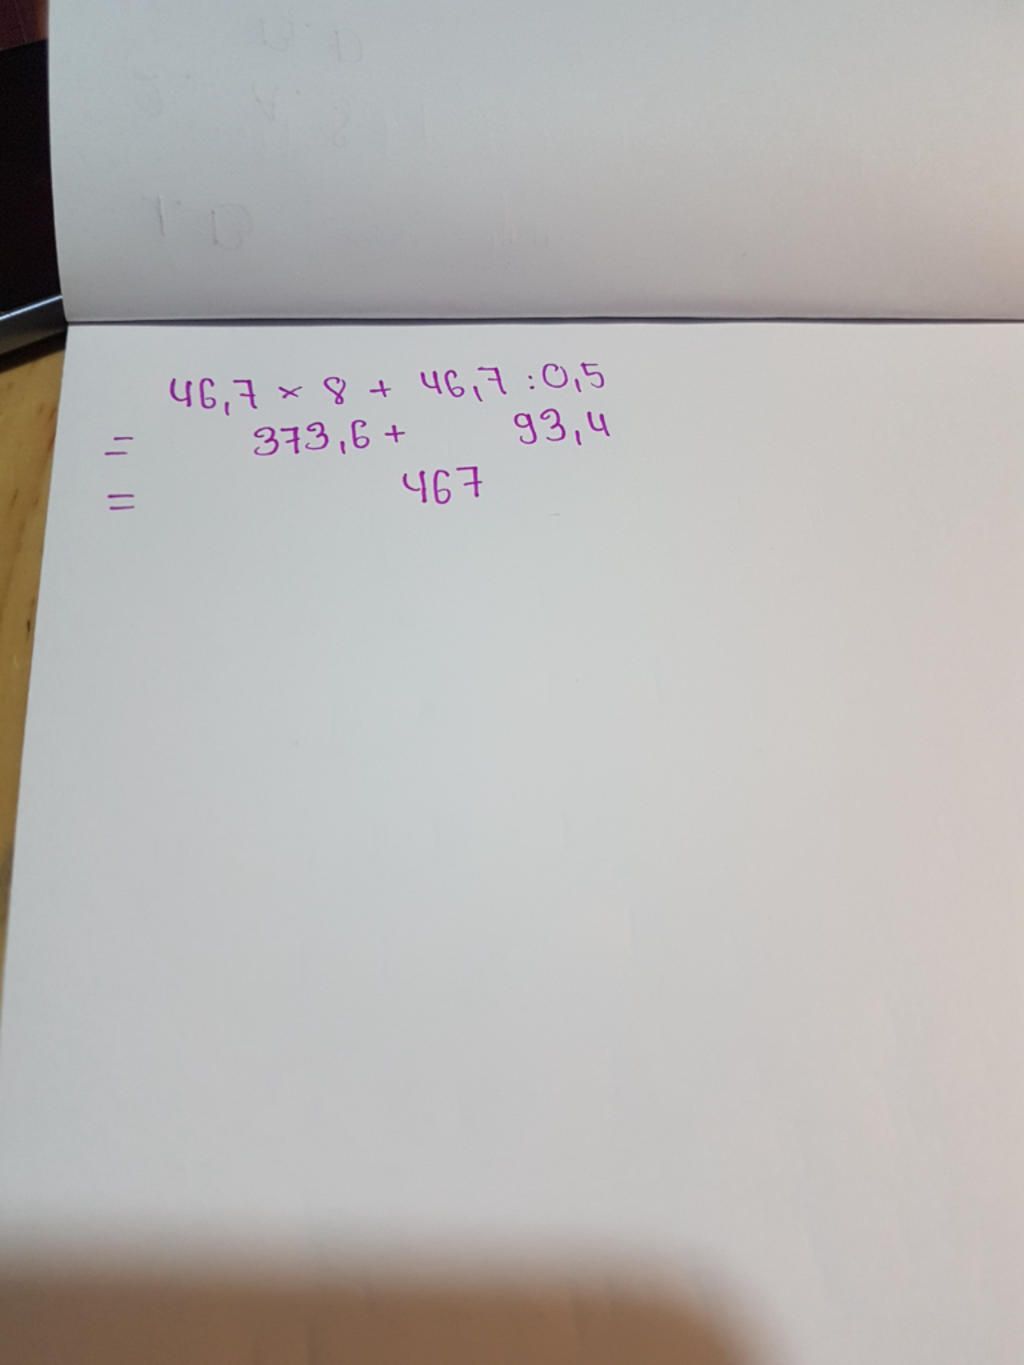 46,7 × 8 + 46,7 : 0,5
= 373,6 + 93,4
= 467